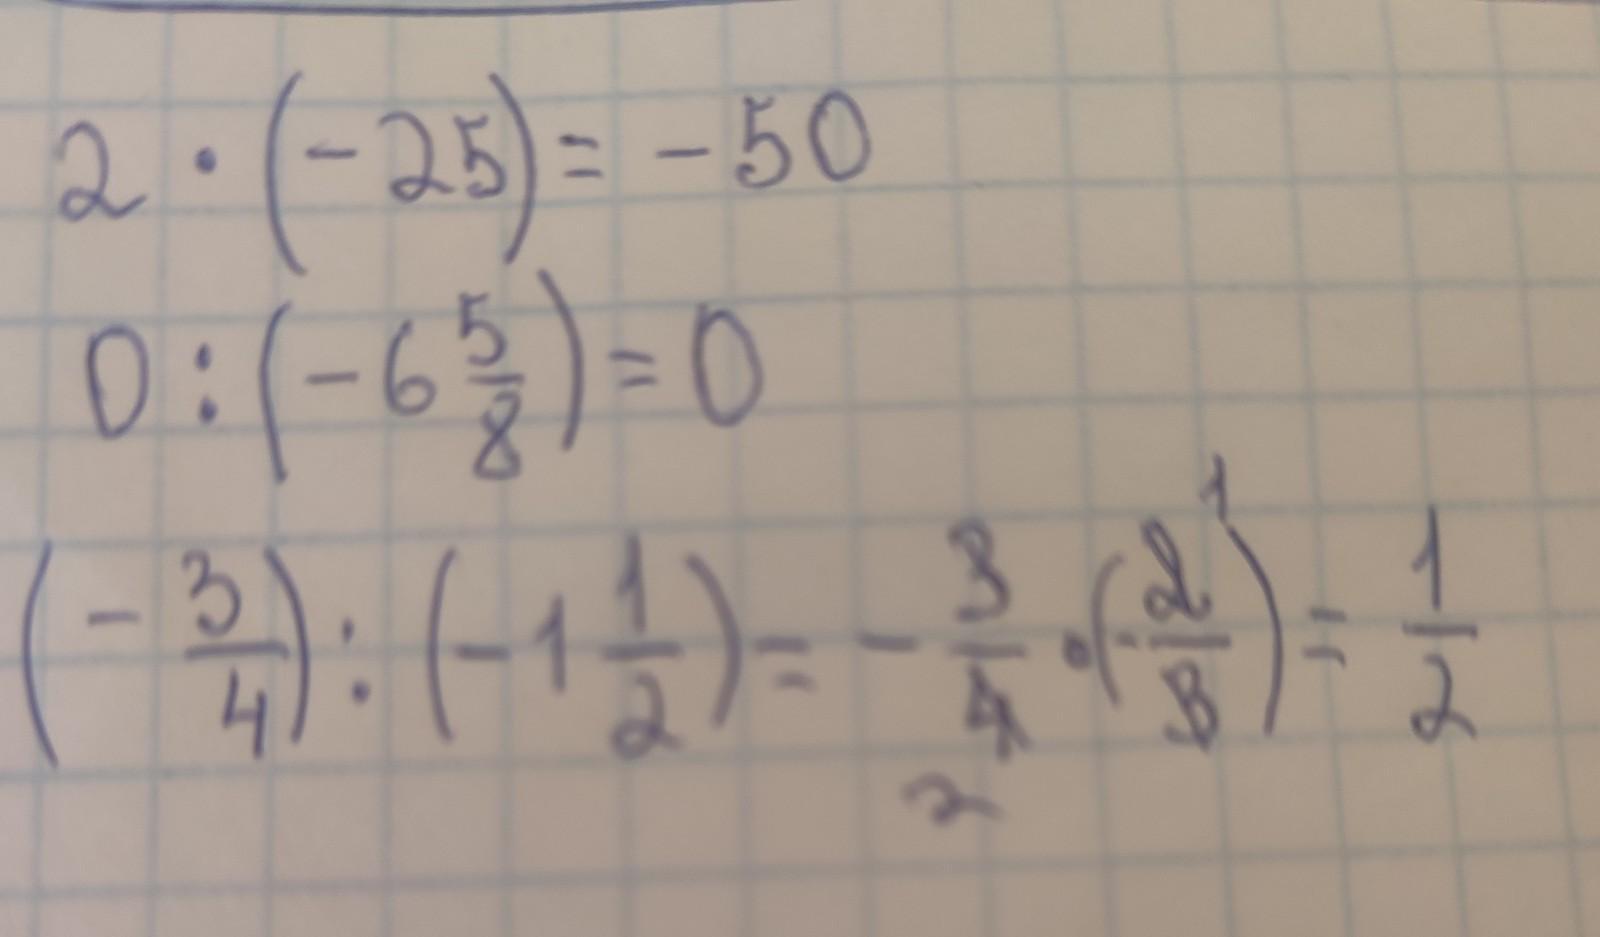 2 · (-25) = -50
0 : (-6 5/8) = 0
(-3/4) : (-1 1/2) = -3/4 · (-2/3) = 1/2
1
2